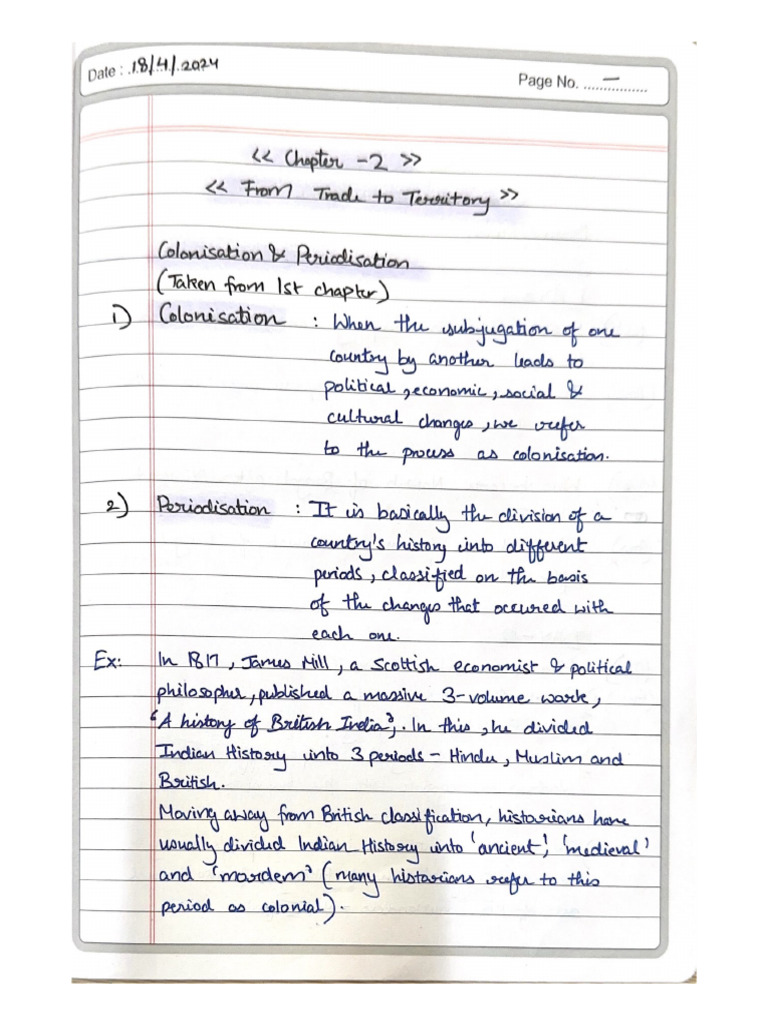 Date : 18/4/2024
Page No. –
<< Chapter -2 >>
<< From Trade to Territory >>
Colonisation & Periodisation
(Taken from 1st chapter)
1) Colonisation : When the subjugation of one
country by another leads to
political, economic, social &
cultural changes, we refer
to the process as colonisation.
2) Periodisation : It is basically the division of a
country's history into different
periods, classified on the basis
of the changes that occured with
each one.
Ex: In 1817, James Mill, a Scottish economist & political
philosopher, published a massive 3-volume work,
'A history of British India'. In this, he divided
Indian History into 3 periods - Hindu, Muslim and
British.
Moving away from British classification, historians have
usually divided Indian History into 'ancient', 'medieval'
and 'mordern' (many historians refer to this
period as colonial).